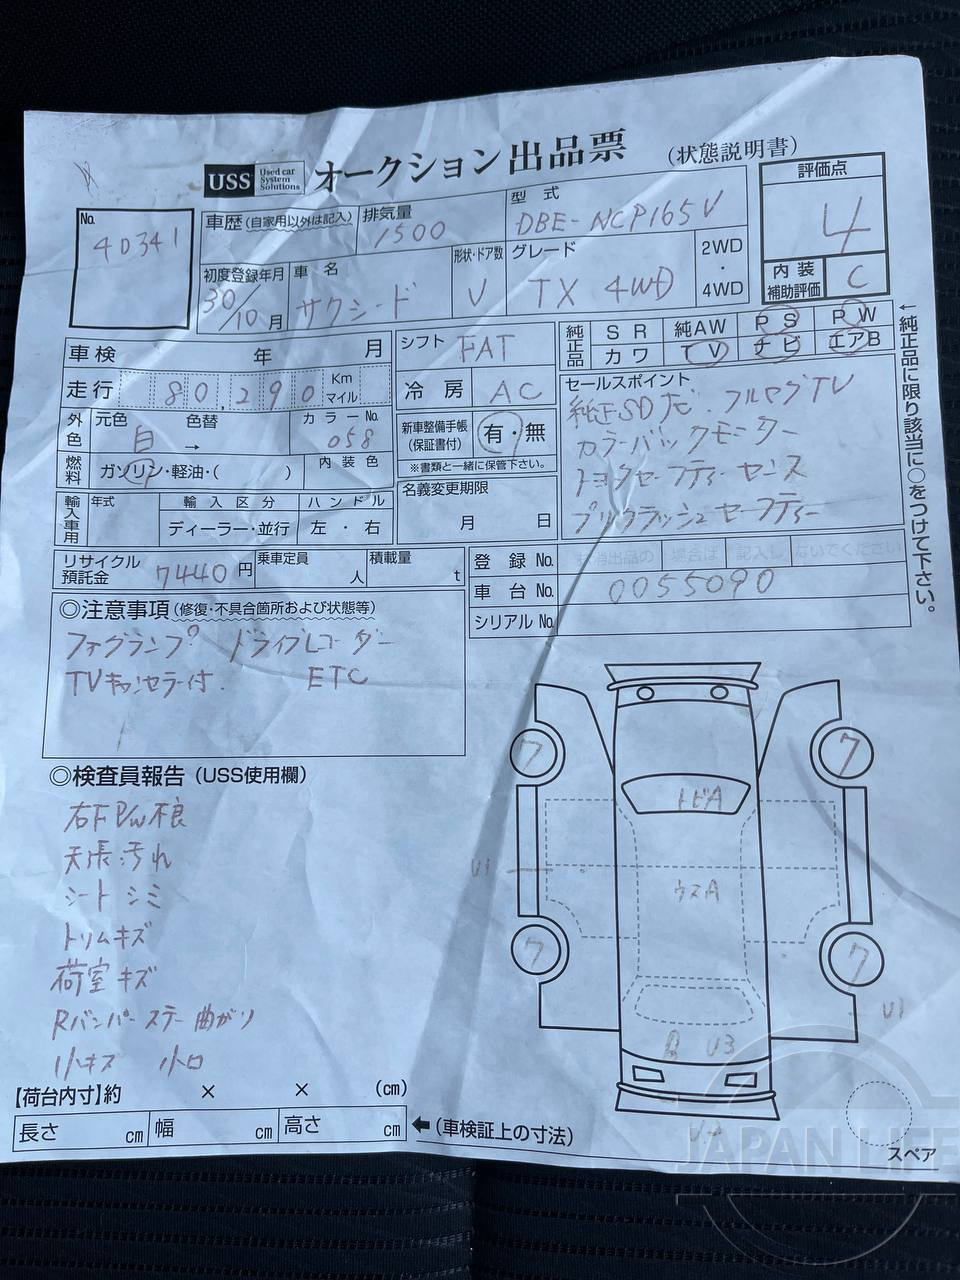 USS Used car System Solutions オークション出品票 (状態説明書)
No. 40341
車歴(自家用以外は記入) 排気量 1500 型式 DBE-NCP165V
評価点 4
内装補助評価 C
初度登録年月 30/10月 車名 サクシード 形状・ドア数 V グレード TX 4WD 2WD・4WD
車検 年 月 シフト FAT
純正品 SR 純AW PS PW
カワ TV ナビ エアB
←純正品に限り該当に○をつけて下さい。
走行 80,290 Km マイル 冷房 AC
外色 元色 白 色替 → カラーNo. 058
新車整備手帳(保証書付) 有・無
※書類と一緒に保管下さい。
燃料 ガソリン・軽油・( ) 内装色
セールスポイント
純正SDナビ フルセグTV
カラーバックモニター
トヨタセーフティーセンス
プリクラッシュセーフティー
名義変更期限 月 日
輸入車用 年式 輸入区分 ハンドル
ディーラー・並行 左・右
リサイクル預託金 7440円 乗車定員 人 積載量 t
登録No. 抹消出品の 場合は 記入し ないでください
車台No. 0055090
シリアルNo.
◎注意事項(修復・不具合箇所および状態等)
フォグランプ ドライブレコーダー
TVキャンセラー付. ETC
◎検査員報告(USS使用欄)
右F P/W不良
天張汚れ
シート シミ
トリムキズ
荷室キズ
Rバンパーステー曲がり
小キズ 小凹
7 7
トビA
U1
ウスA
7 7
U1
U3
【荷台内寸】約 × × (cm)
長さ cm 幅 cm 高さ cm ←(車検証上の寸法)
スペア
JAPAN LIFE